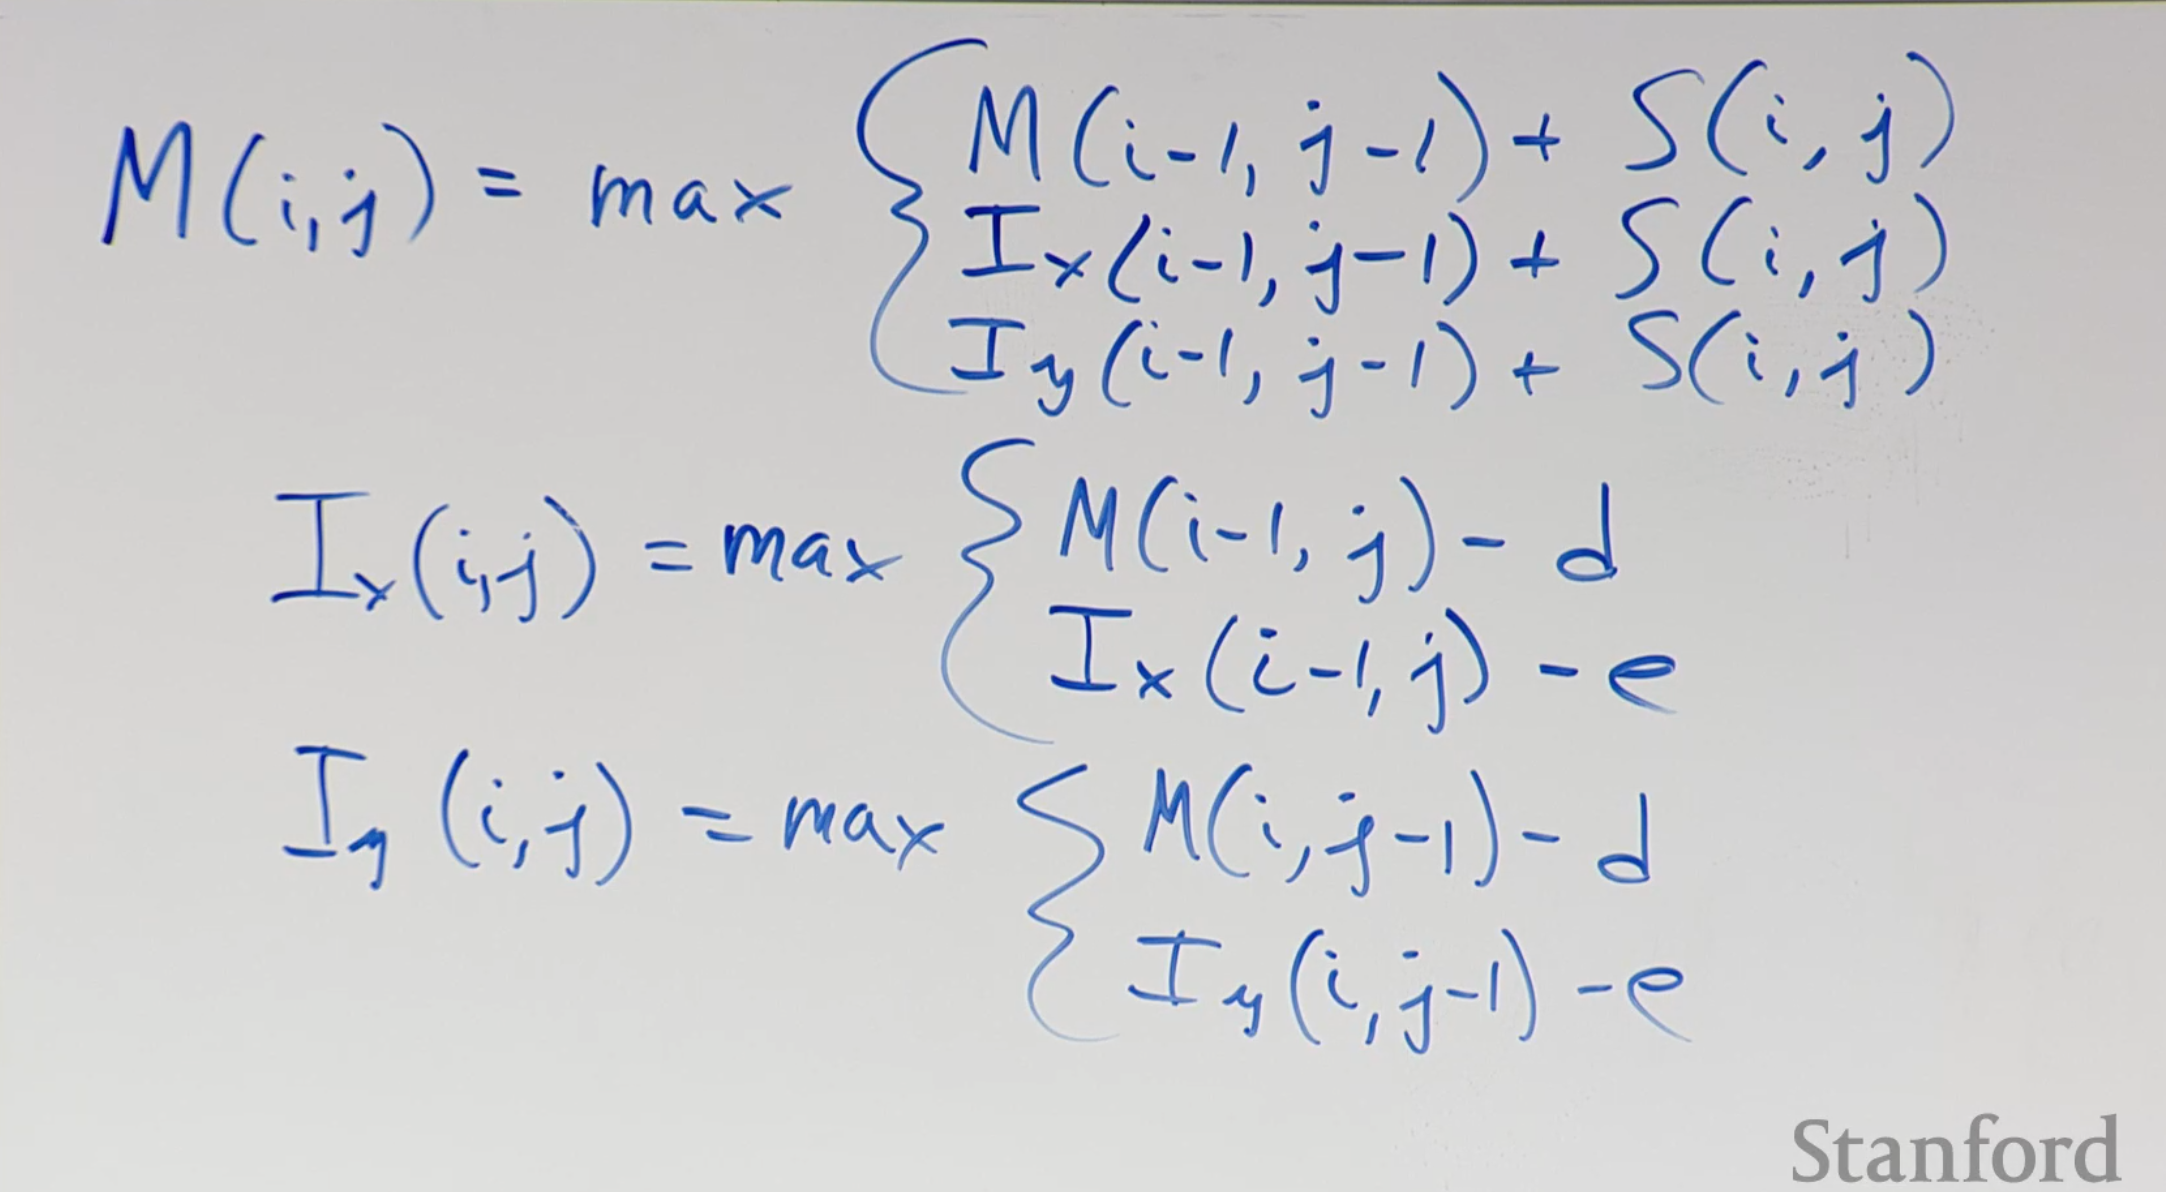 M(i,j) = max { M(i-1, j-1) + S(i, j)
Ix(i-1, j-1) + S(i, j)
Iy(i-1, j-1) + S(i, j)
Ix(i,j) = max { M(i-1, j) - d
Ix(i-1, j) - e
Iy(i,j) = max { M(i, j-1) - d
Iy(i, j-1) - e
Stanford